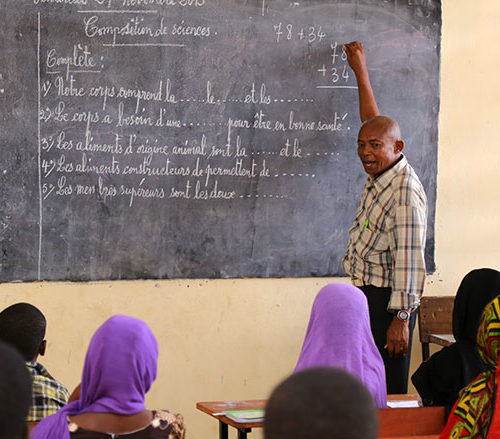 Novembre 2015
Composition de sciences.
78 + 34
78
+ 34
Complète :
1) Notre corps comprend la ...... le ..... et les ..........
2) Le corps a besoin d'une ......... pour être en bonne santé.
3) Les aliments d'origine animal, sont la ..... et le ........
4) Les aliments constructeurs de permettent de ..........
5) Les membres supérieurs sont les deux ..........